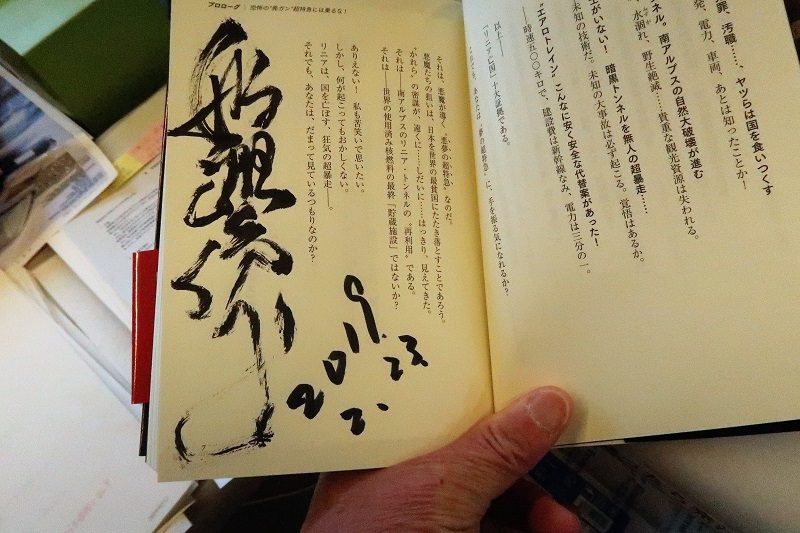 罪、汚職……、ヤツらは国を食いつくす
発、電力、車両、あとは知ったことか!
ンネル。南アルプスの自然大破壊が進む
水涸れ、野生絶滅……貴重な観光資源は失われる。
がいない! 暗黒トンネルを無人の超暴走……
未知の技術だ。未知の大事故は必ず起こる。覚悟はあるか。
“エアロトレイン” こんなに安く安全な代替案があった!
——時速五〇〇キロで、建設費は新幹線なみ、電力は三分の一。
以上——
『リニア亡国』十大証拠である。
あなたは“夢の超特急”に、手を振る気になれるか?
プロローグ 恐怖の“発ガン”超特急には乗るな!
それは、悪魔が導く“悪夢の超特急”なのだ。
悪魔たちの狙いは、日本を世界の最貧国にたたき落とすことであろう。
“かれら”の密謀が、遠くに……しだいに……はっきり、見えてきた。
それは——南アルプスのリニア・トンネルの“再利用”である。
それは——世界の使用済み核燃料の最終「貯蔵施設」ではないか?
ありえない! 私も苦笑いで思いたい。
しかし、何が起こってもおかしくない。
リニアは、国を亡ぼす、狂気の超暴走——。
それでも、あなたは、だまって見ているつもりなのか?
2019.
2. 23